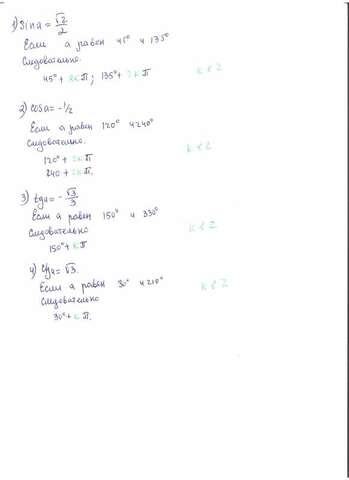 1) Sin a = √2/2
Если a равен 45° и 135°
Следовательно:
45° + 2kπ ; 135° + 2kπ k ∈ Z
2) cos a = -1/2
Если a равен 120° и 240°
Следовательно: k ∈ Z
120° + 2kπ
240 + 2kπ.
3) tga = -√3/3
Если a равен 150° и 330°
Следовательно k ∈ Z
150° + kπ
4) ctga = √3.
Если a равен 30° и 210° k ∈ Z
Следовательно
30° + kπ.